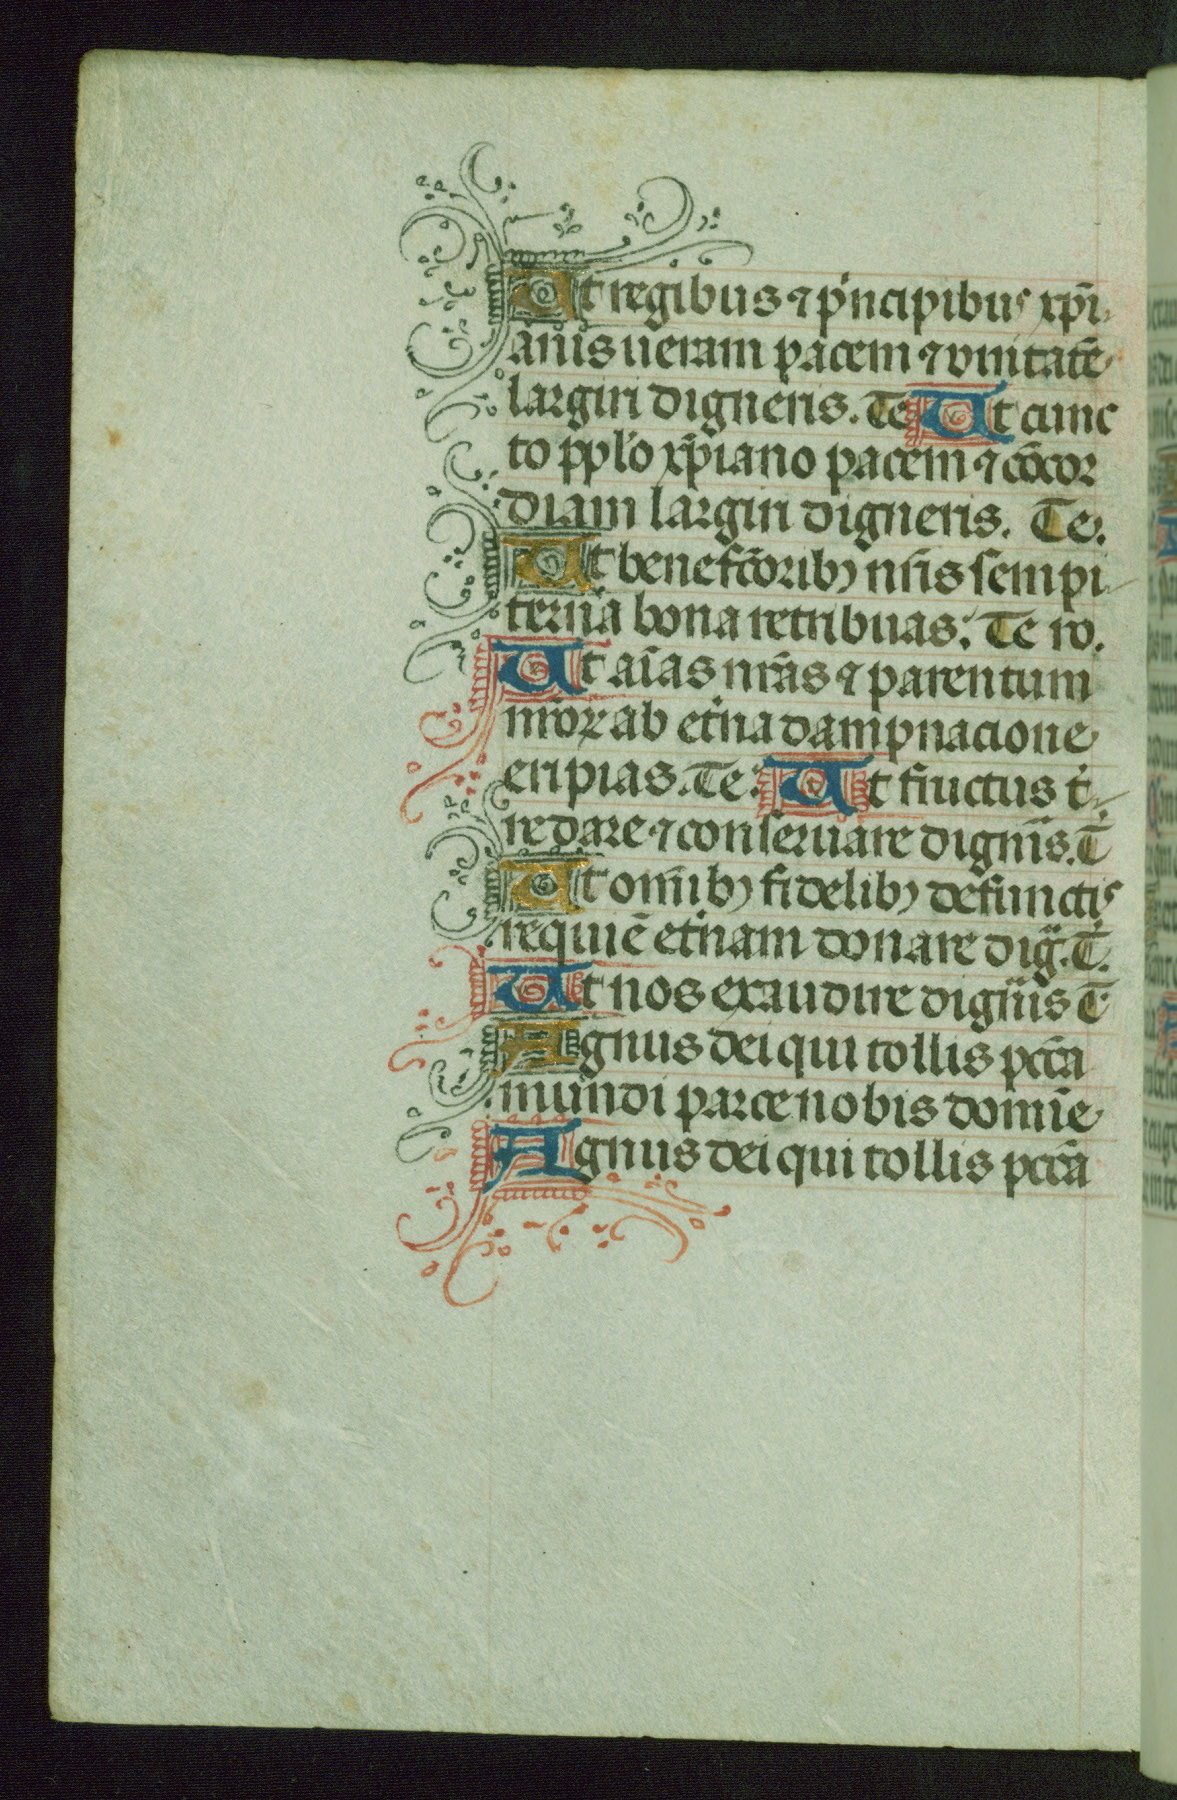 Ut regibus ⁊ p̍ncipibus xp̄i
anis ueram pacem ⁊ vnitatē
largiri digneris. Te Ut cunc
to pplo xp̄iano pacem ⁊ cōcor
diam largiri digneris. Te.
Ut benefc̄oribꝫ nr̄is sempi
terna bona retribuas. Te ro.
Ut aīas nr̄as ⁊ parentum
nr̄oꝝ ab et̍na dampnacione
eripias. Te. Ut fructus t̍
re dare ⁊ conseruare dignīs. T
Ut omībꝫ fidelibꝫ defunctis
requiē et̍nam donare dig̃. T.
Ut nos exaudire dign̄is T
Agnus dei qui tollis pcc̄a
mundi parce nobis domīe
Agnus dei qui tollis pcc̄a